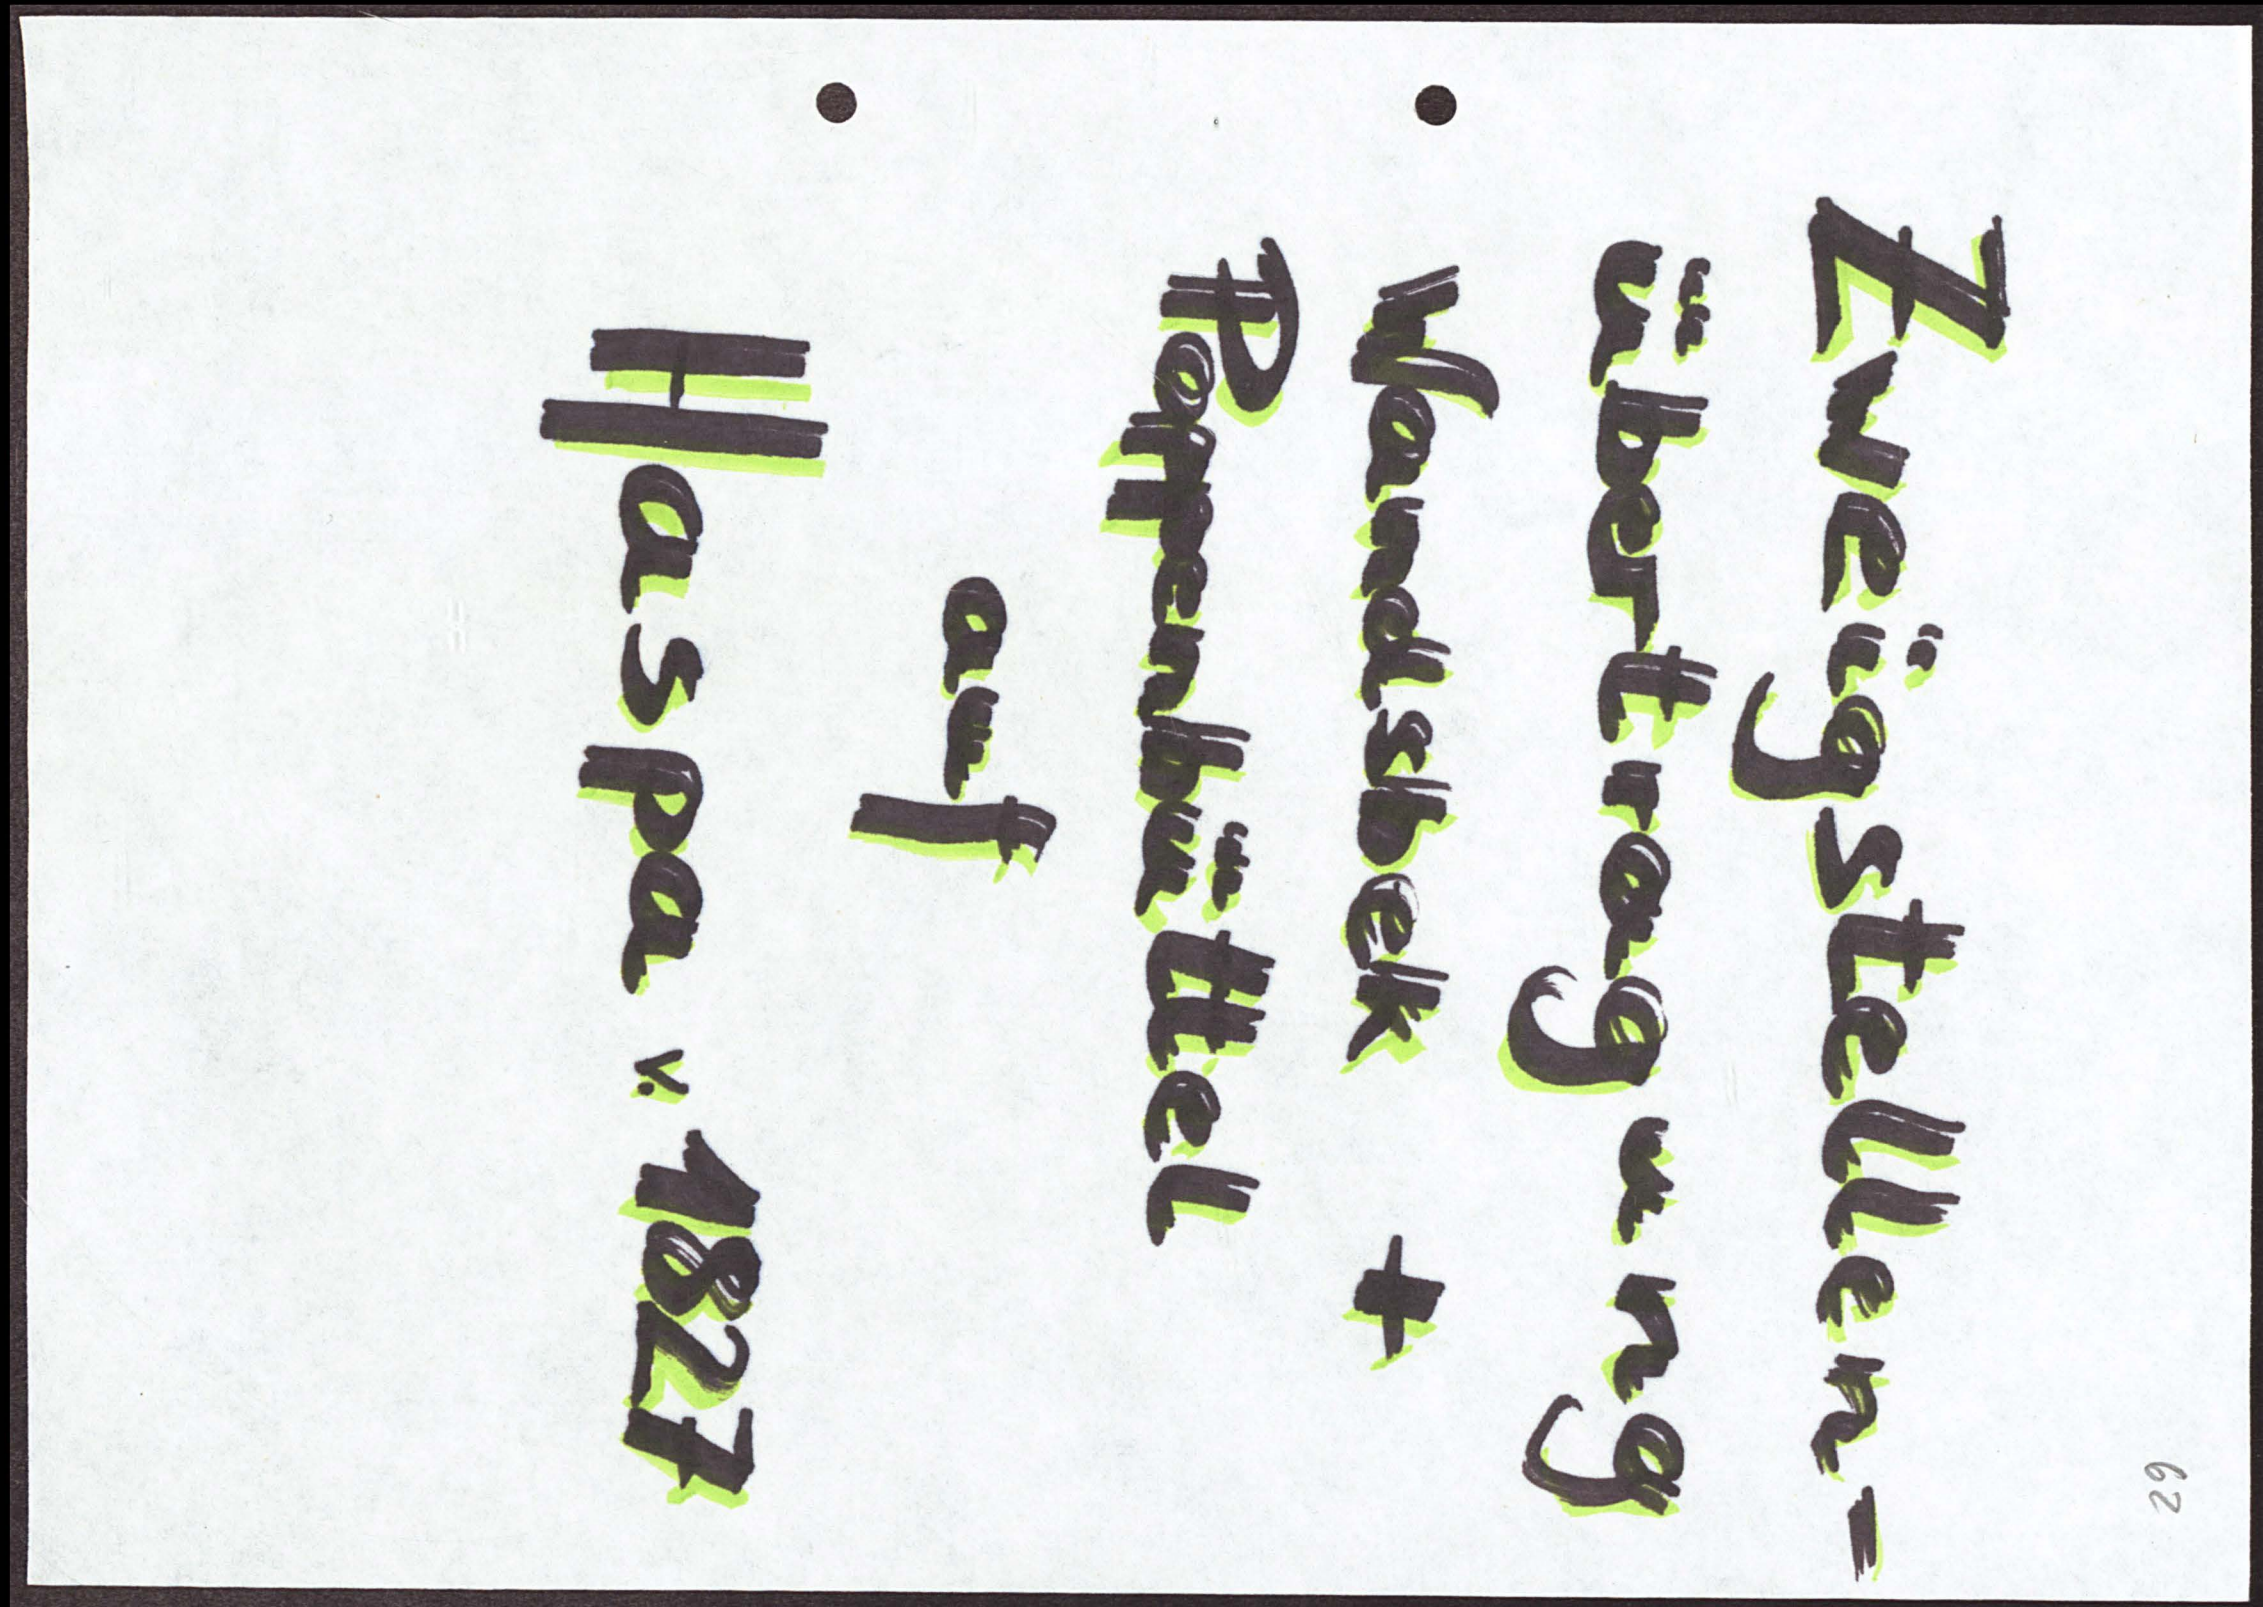 62
Zweigstellen-
übertragung
Wandsbek +
Poppenbüttel
auf
Haspa v. 1827